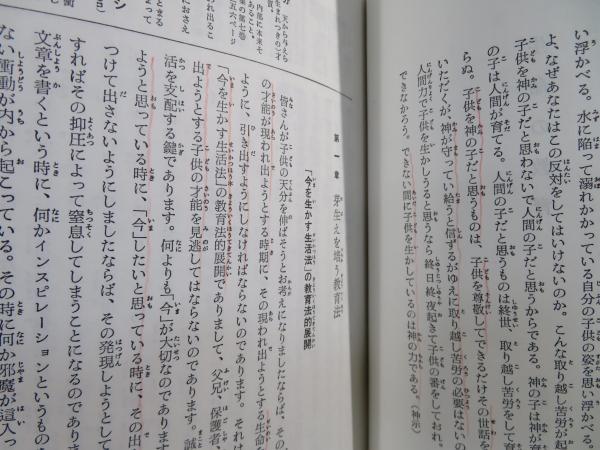 い浮かべる。水に陥って溺れかかっている自分の子供の姿を思い浮かべる。
よ、なぜあなたはこの反対をしてはいけないのか。こんな取り越し苦労が起
子供を神の子だと思わないで人間の子だと思うからである。神の子は神が育
の子は人間が育てる。人間の子だと思うものは終世、取り越し苦労をして育
らぬ。子供を神の子だと思うものは、子供を尊敬してできるだけその世話を
いただくが、神が守ってい給うと信ずるがゆえに取り越し苦労の必要はないの
人間力で子供を生かしうると思うなら終日終夜起きて子供の番をしておれ。
できなかろう。できない間に子供を生かしているのは神の力である。(神示)
第一章 芽生えを培う教育法
「今を生かす生活法」の教育法的展開
皆さんが子供の天分を伸ばそうとお考えになりましたならば、その
の才能が現われ出ようとする時期に、その現われ出ようとする生命を
ように、引き出すようにしなければならないのであります。それは
「今を生かす生活法」の教育法的展開でありまして、父兄、保護者、
出ようとする子供の才能を見逃してはならないのであります。誠
活を支配する鍵であります。何よりも「今」が大切なのであります
ようと思っている時に、「今」したいと思っている時に、その出
つけて出さないようにしましたならば、その発現しようとして
すればその抑圧によって窒息してしまうことになるのであります
文章を書くという時に、何かインスピレーションというもの
ない衝動が内から起こっている。その時に何か邪魔が入っ
天から与えら
生まれつきの才
内部に本来そ
あること。
集の第七巻
五六ページ